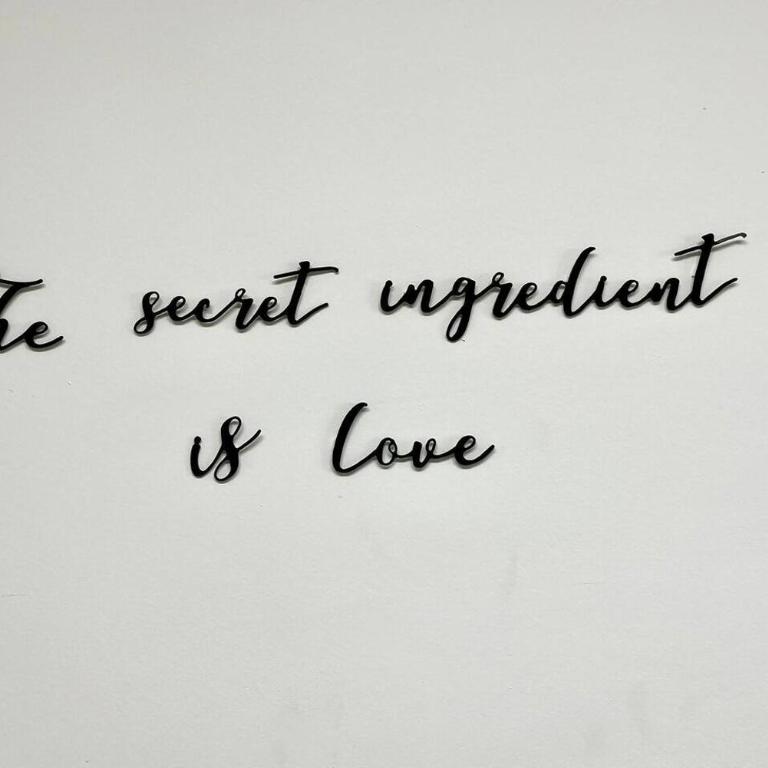 The secret ingredient
is love